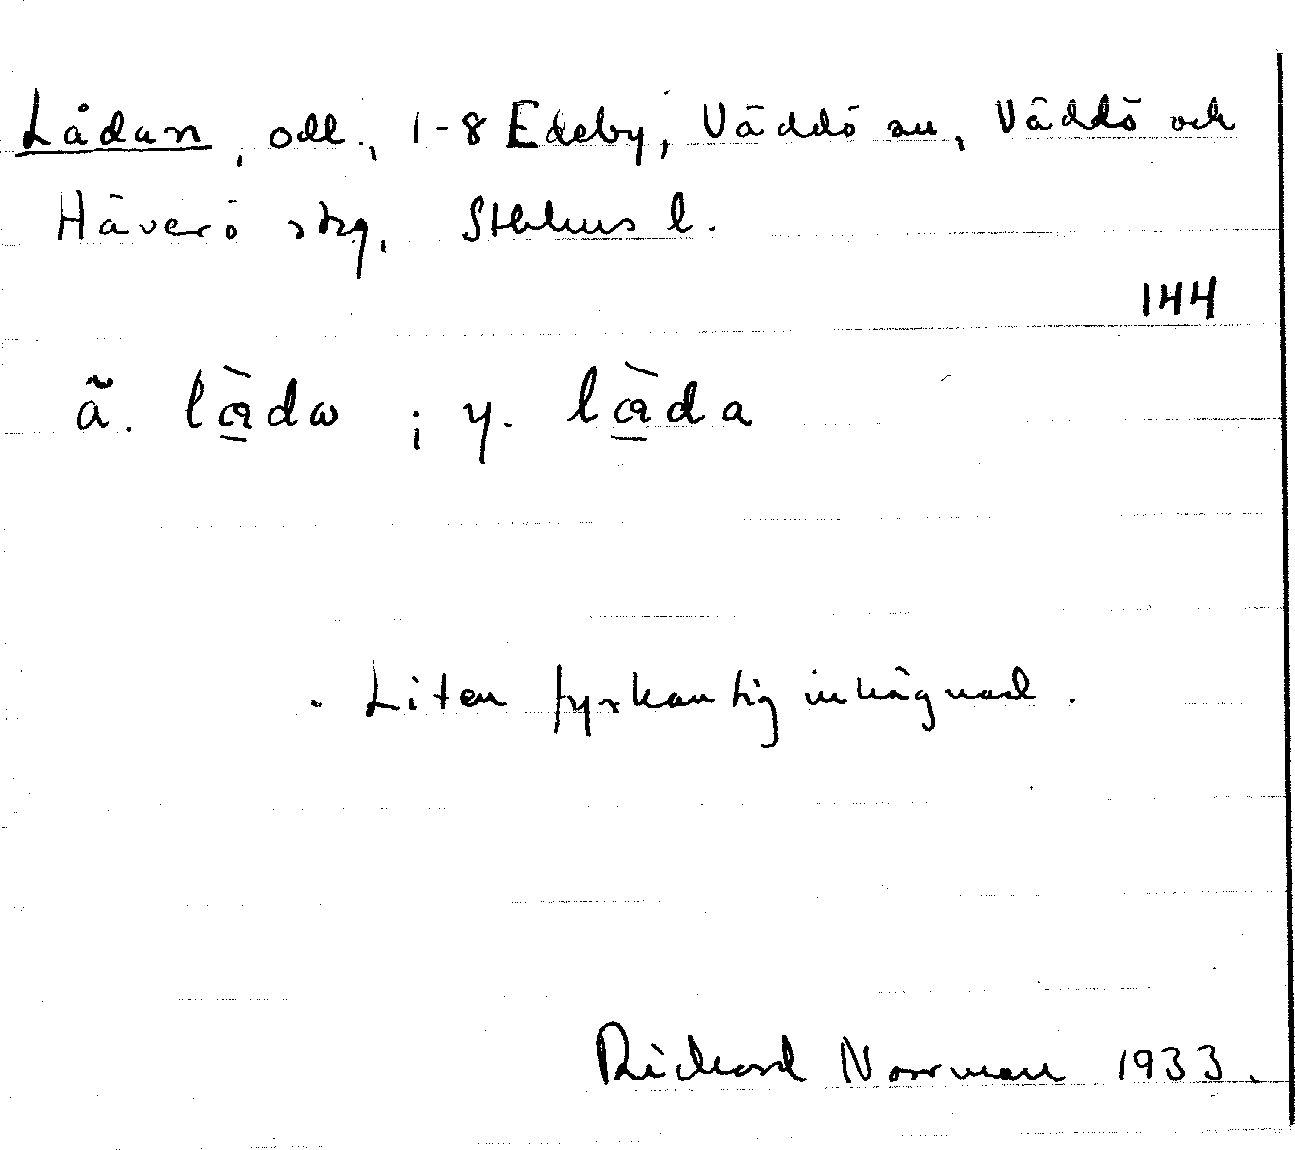 Lådan, odl., 1-8 Edeby, Väddö sn, Väddö och
Häverö skg, Sthlms l.
144
ä. lὰ̱dω ; y. lὰ̱da
. Liten fyrkantig inhägnad.
Rickard Norrman 1933.